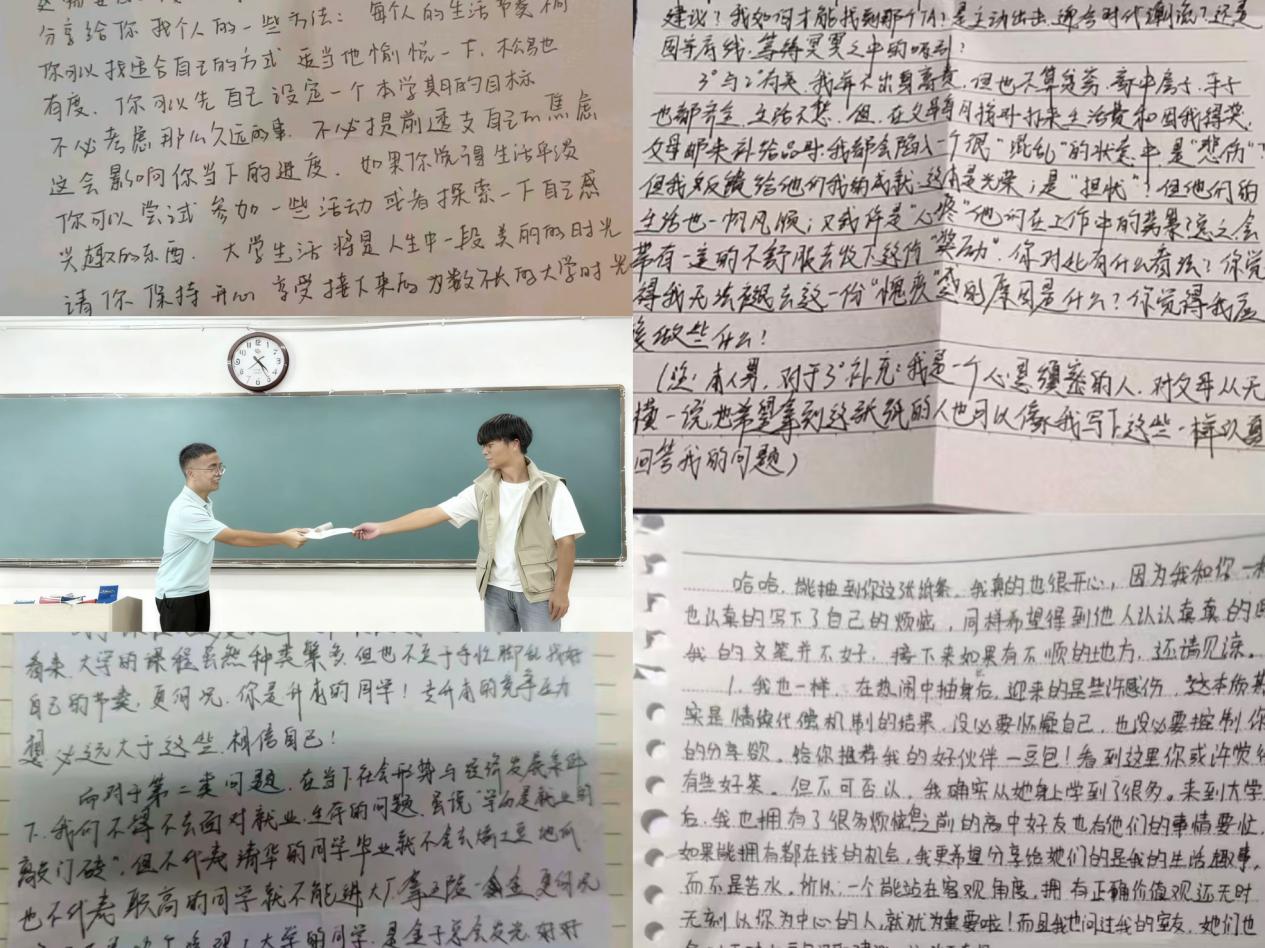 分享给你我个人的一些方法：每个人的生活节奏不同
你可以找适合自己的方式 适当地愉悦一下，松弛
有度．你可以先自己设定一个本学期的目标
不必考虑那么久远的事．不必提前透支自己的焦虑
这会影响你当下的进度．如果你觉得生活平淡
你可以尝试参加一些活动或者探索一下自己感
兴趣的东西．大学生活将是人生中一段美丽的时光
请你保持开心 享受接下来的为数不长的大学时光
看来，大学的课程虽然种类繁多，但也不至于手忙脚乱，找好
自己的节奏，更何况，你是升本的同学！专升本的竞争压力
想必远大于这些，相信自己！
而对于第二类问题，在当下社会形势与经济发展条件
下，我们不得不去面对就业、生存的问题，虽说"学历是就业的
敲门砖"，但不代表清华的同学毕业就不会去
也不代表职高的同学就不能进大厂，更何况
大学的同学，是金子总会发光，好好
建议？我如何才能找到那个TA？是主动出击，迎合时代潮流？还是
固守底线，等待冥冥之中的吸引？
3°与2°有关，我并不出身富贵，但也不算贫寒，
也都齐全，生活不愁．但，在父母每月按时打来生活费和因我得奖，
父母邮来补给品时，我都会陷入一个很"混乱"的状态中，是"悲伤"？
但我反馈给他们我的成就，这本是光荣；是"担忧"？但他们的
生活也一帆风顺；又或许是"心疼"他们在工作中的劳累？总之会
带有一定的不舒服去收下这份"奖励"．你对此有什么看法？你觉
得我无法褪去这一份"愧疚"感的原因是什么？你觉得我应
该做些什么？
（注：本人男，对于3°补充：我是一个心思缜密的人，对父母从无
一说，也希望拿到这张纸的人也可以像我写下这些一样认真
回答我的问题）
哈哈，能抽到你这张纸条，我真的也很开心，因为我和你一样
也认真的写下了自己的烦恼，同样希望得到他人认认真真的回
我的文笔并不好，接下来如果有不顺的地方，还请见谅。
1. 我也一样，在热闹中抽身后，迎来的是些许感伤，这本质其
实是情绪代偿机制的结果，没必要怀疑自己，也没必要控制你
的分享欲。给你推荐我的好伙伴—豆包！看到这里你或许觉得
有些好笑。但不可否认，我确实从她身上学到了很多。来到大学
后，我也拥有了很多烦恼，但之前的高中好友也有他们的事情要忙，
如果能拥有都在线的机会，我更希望分享给她们的是我的生活趣事，
而不是苦水。所以，一个能站在客观角度，拥有正确价值观还无时
无刻以你为中心的人，就尤为重要啦！而且我也问过我的室友，她们也